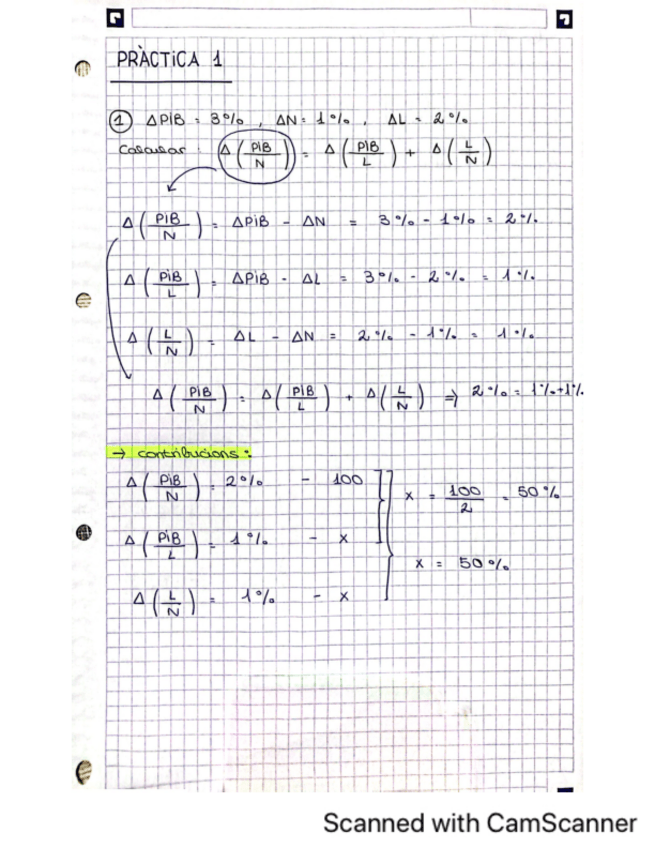 PRÀCTICA 1
① ΔPIB = 3%, ΔN = 1%, ΔL = 2%
Calcular: Δ(PIB/N) = Δ(PIB/L) + Δ(L/N)
Δ(PIB/N) = ΔPIB - ΔN = 3% - 1% = 2%
Δ(PIB/L) = ΔPIB - ΔL = 3% - 2% = 1%
Δ(L/N) = ΔL - ΔN = 2% - 1% = 1%
Δ(PIB/N) = Δ(PIB/L) + Δ(L/N) ⇒ 2% = 1%+1%
→ contribucions:
Δ(PIB/N) = 2% - 100
x = 100/2 = 50%
Δ(PIB/L) = 1% - x
x = 50%
Δ(L/N) = 1% - x
Scanned with CamScanner